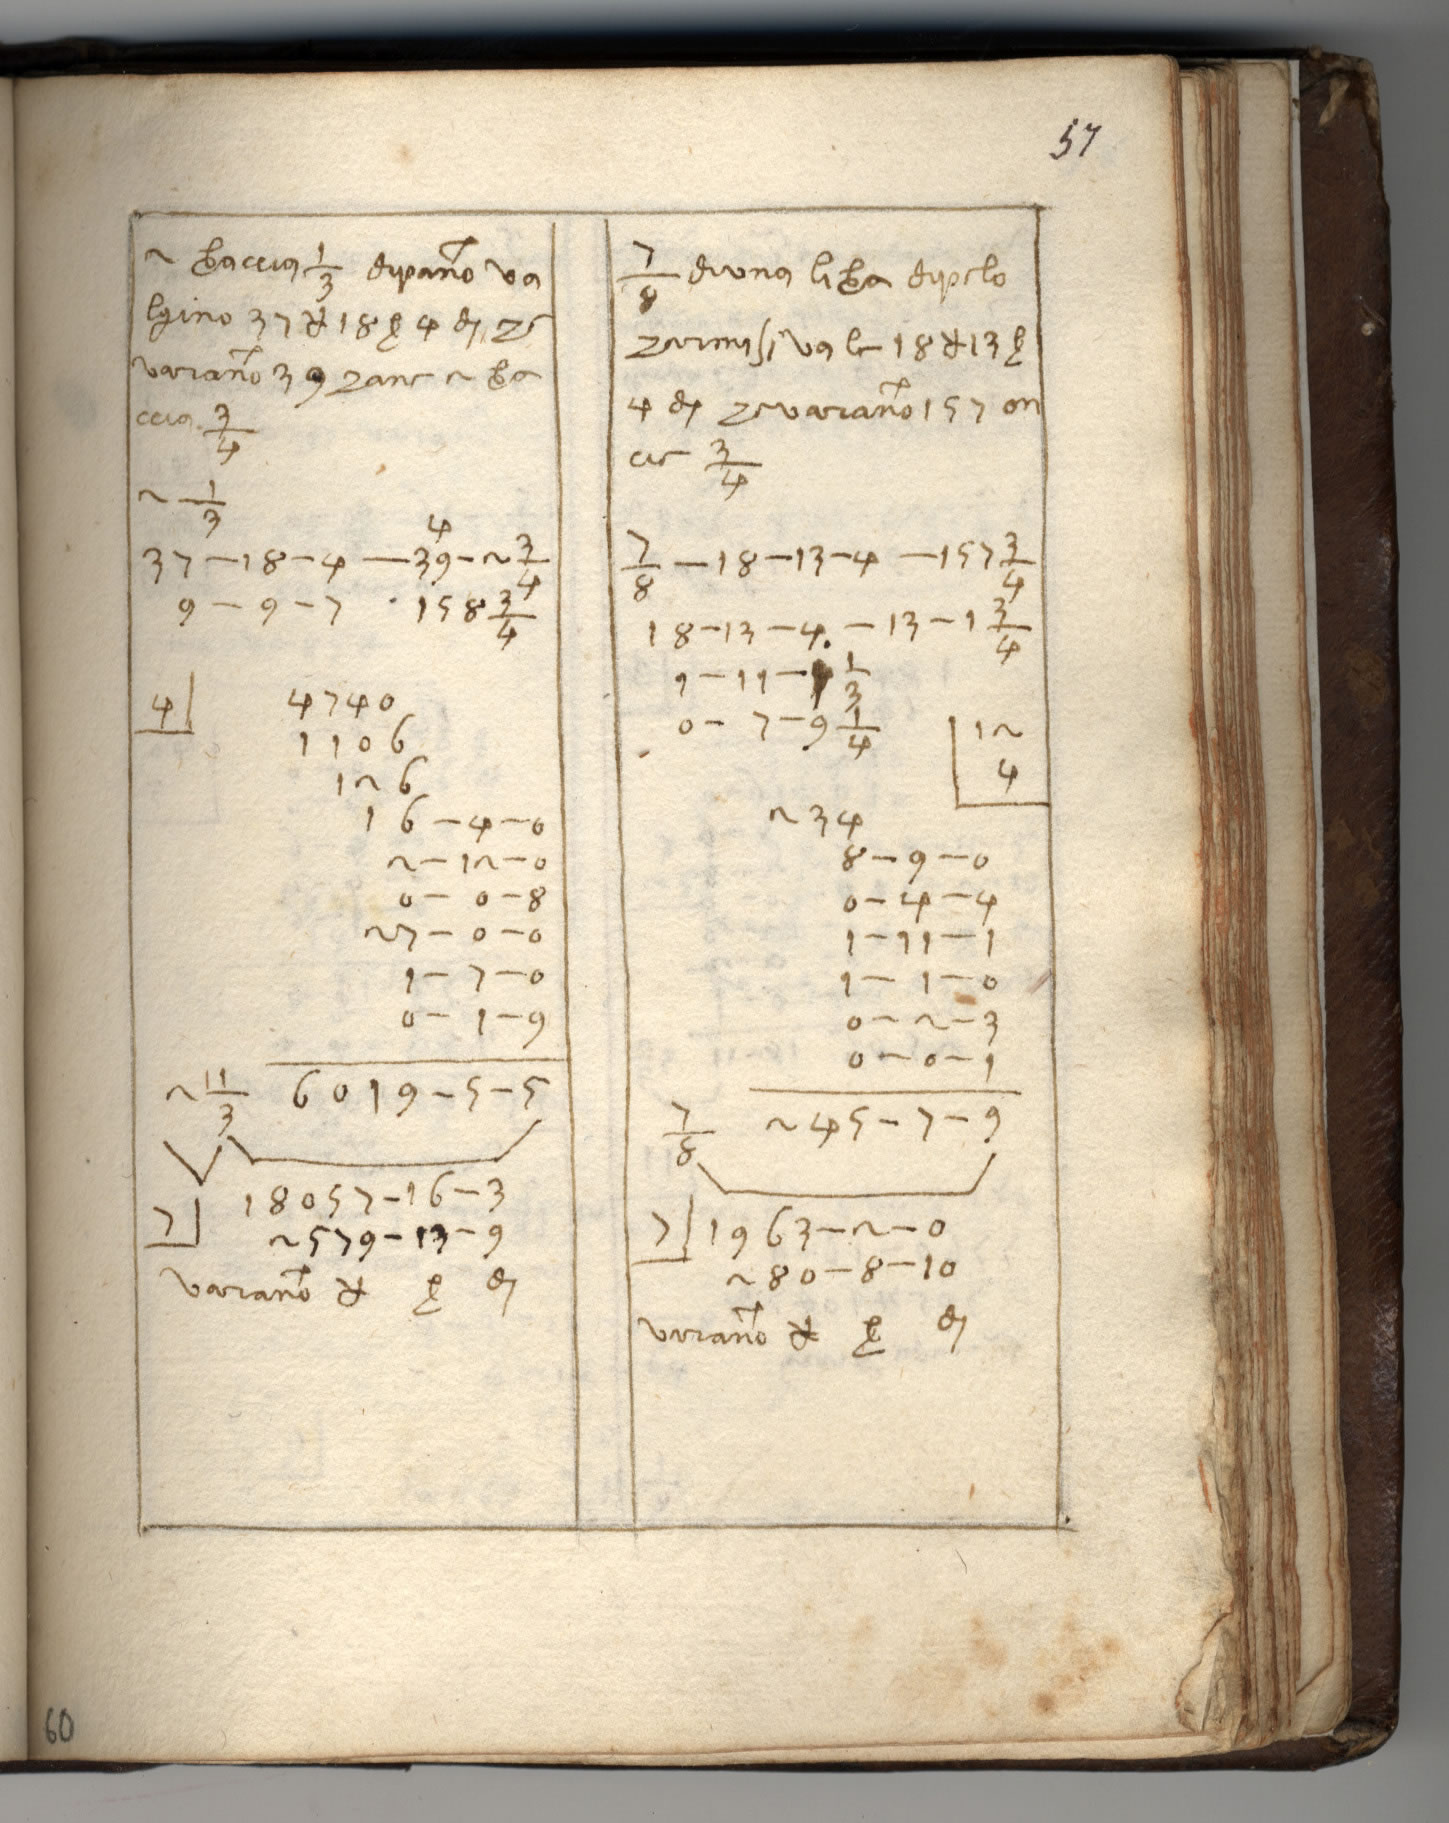 57
2 braccia 1/3 di panno va
lgino 37 ₰ 18 ß 4 đ che
varanno 39 zane 2 bra
ccia 3/4
2 1/3
4
37-18-4-39-2 3/4
9-9-7 · 158 3/4
4 4740
1106
126
16-4-0
2-12-0
0-0-8
27-0-0
1-7-0
0-1-9
2 1/3 6019-5-5
7 18057-16-3
2579-13-9
varanno ₰ ß đ
7/8 di una libra di pelo
vale 18 ₰ 13 ß
4 đ che varanno 157 on
cie 3/4
7/8-18-13-4-157 3/4
18-13-4.-13-1 3/4
1-11-1 1/3
0-7-9 1/4
12
4
234
8-9-0
0-4-4
1-11-1
1-1-0
0-2-3
0-0-1
7/8 245-7-9
7 1963-2-0
280-8-10
varanno ₰ ß đ
60